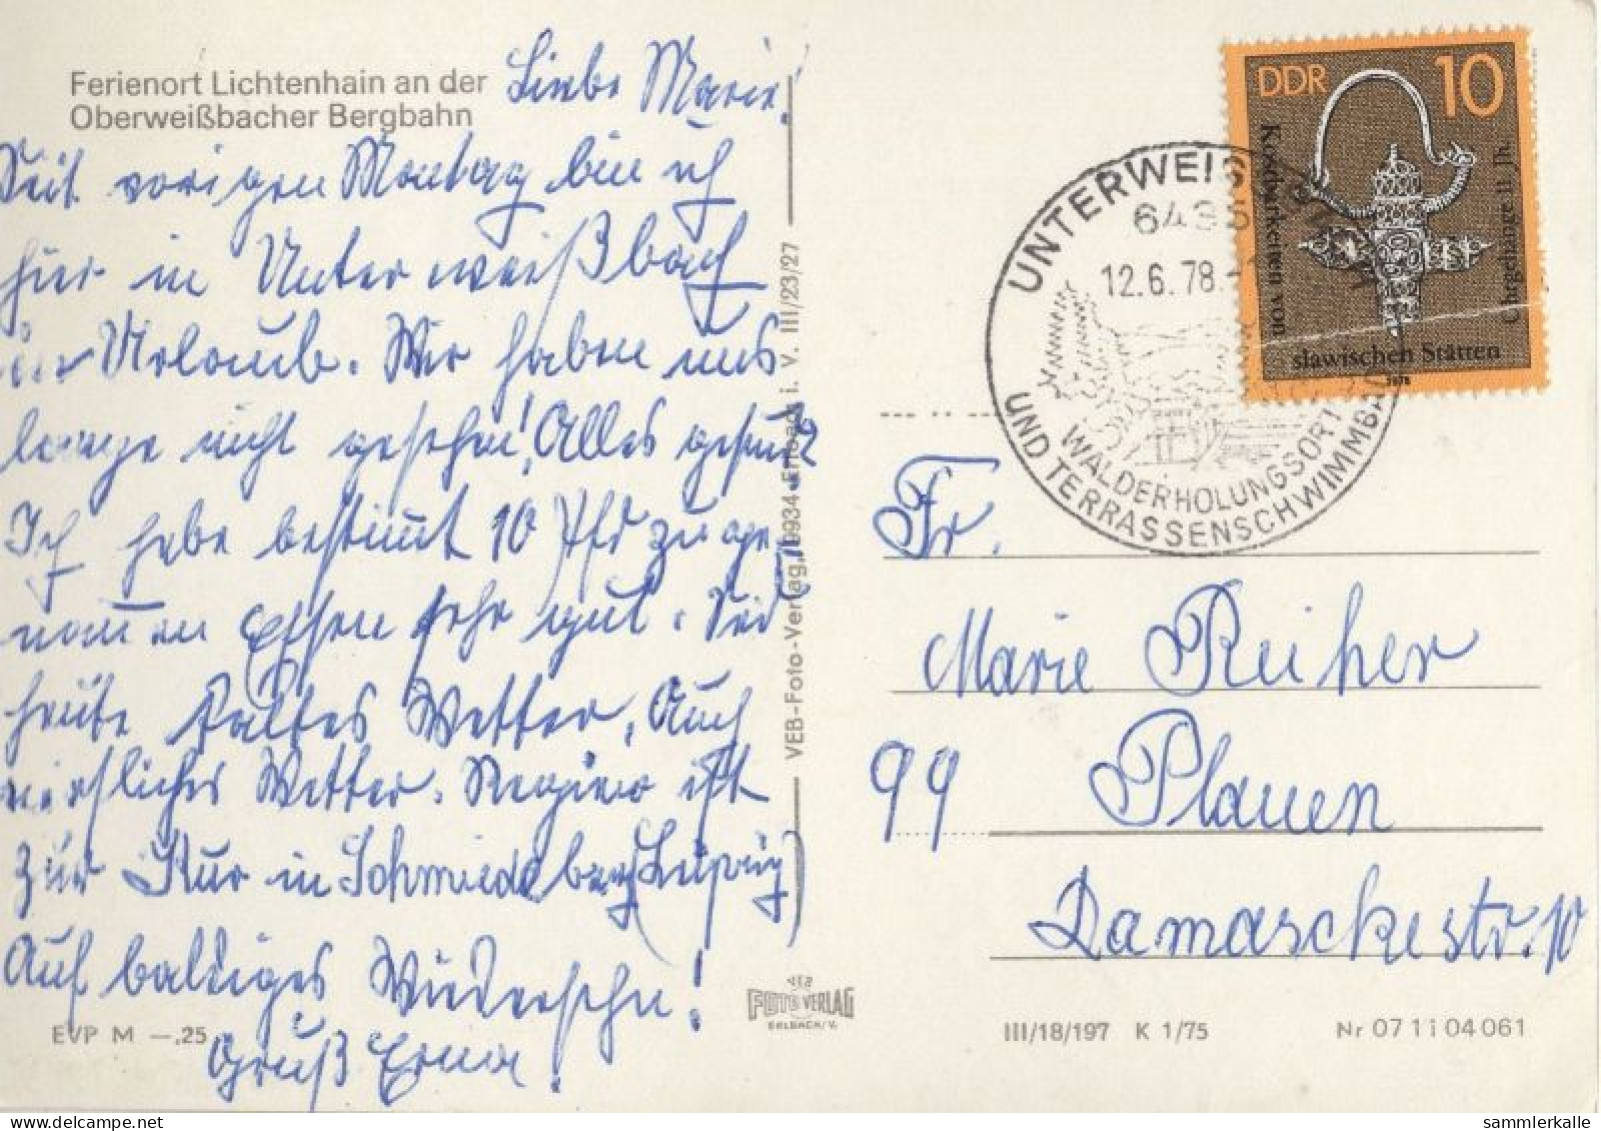 Ferienort Lichtenhain an der
Oberweißbacher Bergbahn
Liebe Marie!
Seit vorigen Montag bin ich
hier in Unterweißbach
in Urlaub. Wir haben uns
lange nicht gesehn! Alles gesund?
Ich habe bestimmt 10 Pfd zuge
nommen Essen sehr gut. Seid
heute kaltes Wetter. Auch
Wetter. ist
zur Kur in Schmiedeberg (Leipzig)
Auf baldiges Wiedersehn!
Gruß Erna!
EVP M –,25
VEB-Foto-Verlag, 9934 Erlbach i. V. III/23/27
VEB
FOTO VERLAG
ERLBACH/V.
DDR 10
Kostbarkeiten von
slawischen Stätten
Ohrgehänge 11. Jh.
1978
UNTERWEISSBACH
12.6.78
WALDERHOLUNGSORT
UND TERRASSENSCHWIMMBAD
Fr.
Marie Reiher
99 Plauen
Damaschkestr. 10
III/18/197 K 1/75
Nr 07 11 04 061
sammlerkalle